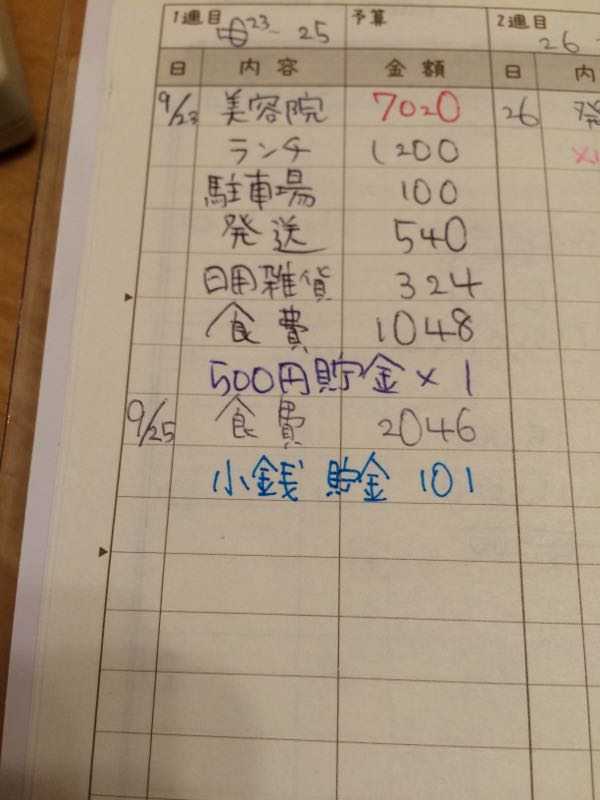 1週目 23~ 25 予算 2週目 26
日 内容 金額 日 内
9/23 美容院 7020 26 発
ランチ 1200
駐車場 100
発送 540
日用雑貨 324
食費 1048
500円貯金×1
9/25 食費 2046
小銭貯金 101